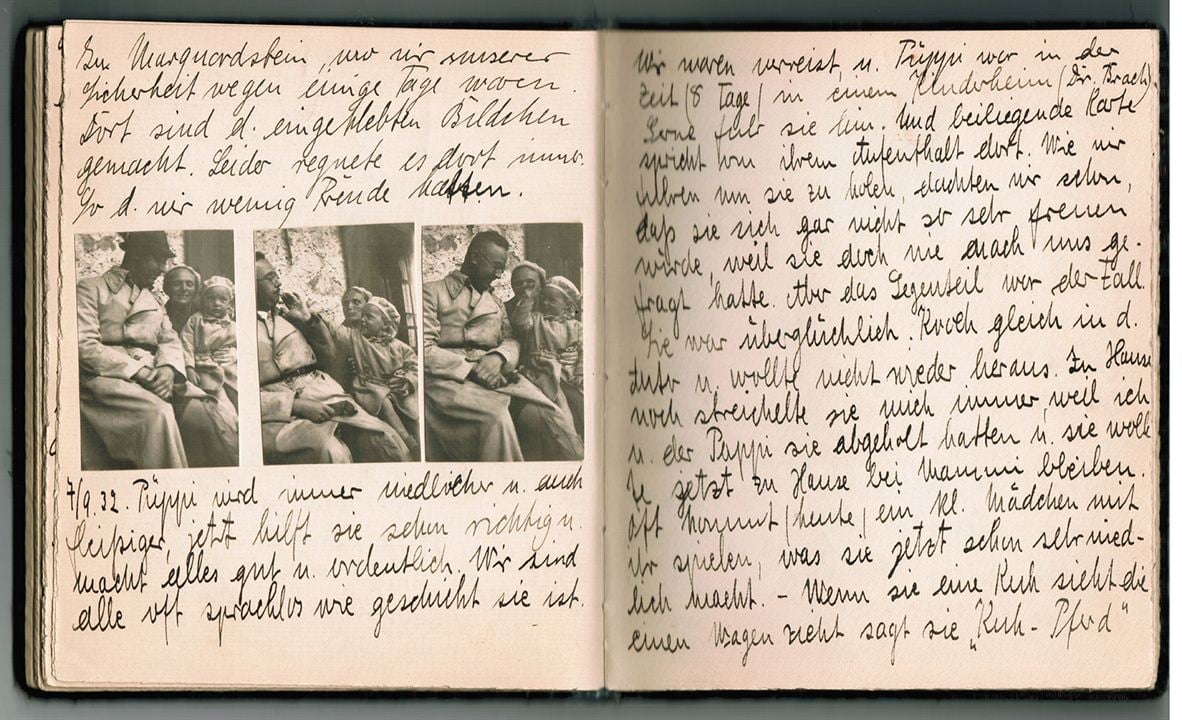 In Marquardstein, wo wir unserer
Sicherheit wegen einige Tage waren.
Dort sind d. eingeklebten Bildchen
gemacht. Leider regnete es dort immer
so d. wir wenig Freude hatten.
7/9.32. Püppi wird immer niedlicher u. auch
fleißiger, jetzt hilft sie schon richtig u.
macht alles gut u. ordentlich. Wir sind
alle oft sprachlos wie geschickt sie ist.
Wir waren verreist, u. Püppi war in der
Zeit (8 Tage) in einem Kinderheim (Dr. Brach).
Gerne fuhr sie hin. Und beiliegende Karte
spricht von ihrem Aufenthalt dort. Wie wir
fuhren um sie zu holen, dachten wir schon,
daß sie sich gar nicht so sehr freuen
würde, weil sie doch nie nach uns ge-
fragt hatte. Aber das Gegenteil war der Fall.
Sie war überglücklich. Kroch gleich in d.
Auto u. wollte nicht wieder heraus. Zu Hause
noch streichelte sie mich immer, weil ich
u. der Pappi sie abgeholt hatten u. sie wolle
jetzt zu Hause bei Mammi bleiben.
Oft kommt (heute) ein kl. Mädchen mit
ihr spielen, was sie jetzt schon sehr nied-
lich macht. - Wenn sie eine Kuh sieht die
einen Wagen zieht sagt sie „Kuh - Pferd"